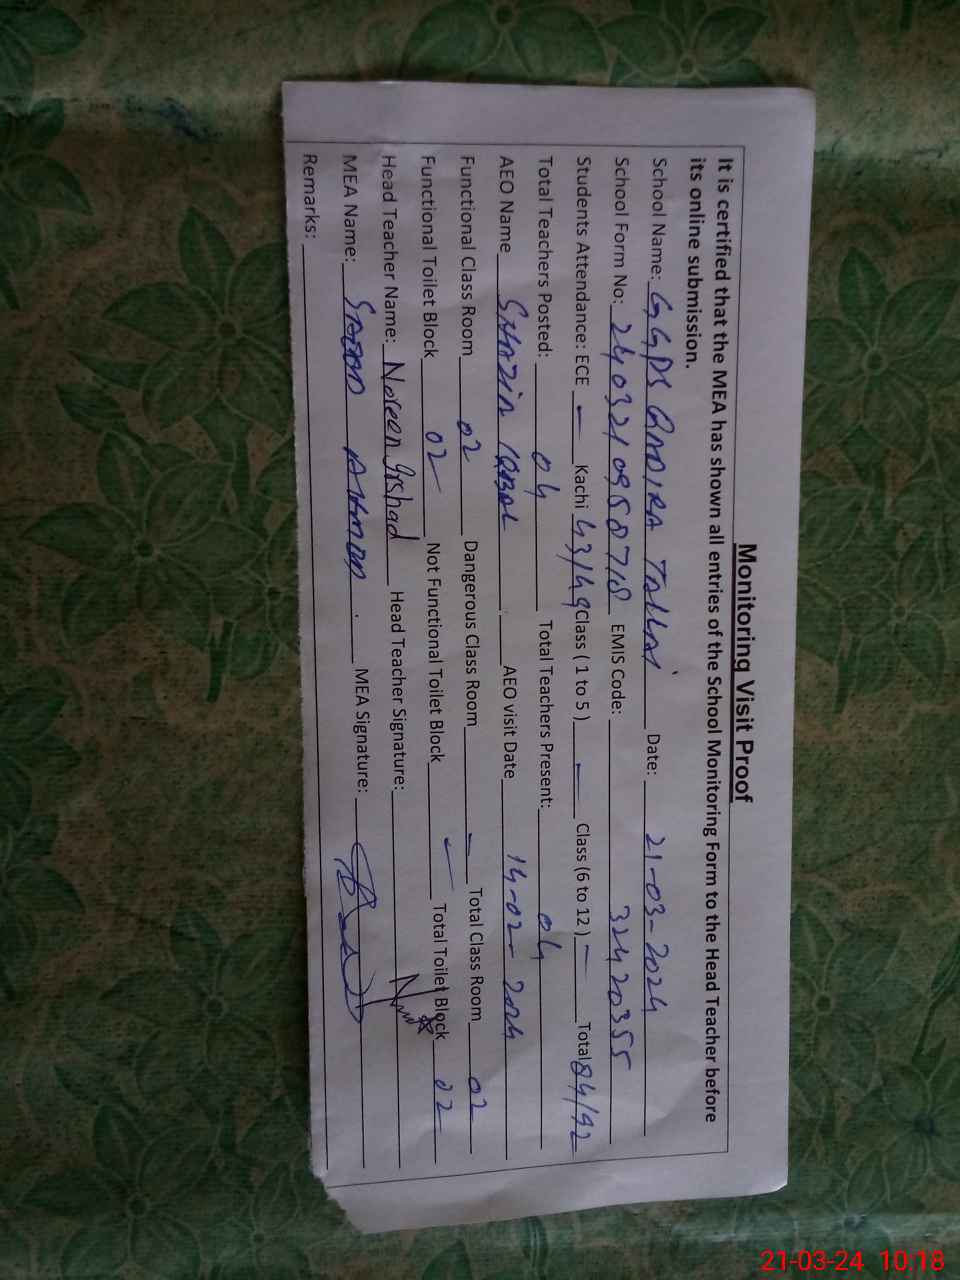 Monitoring Visit Proof
It is certified that the MEA has shown all entries of the School Monitoring Form to the Head Teacher before
its online submission.
School Name: GGPS Date: 21-03-2024
School Form No: 24032109580718 EMIS Code: 32420355
Students Attendance: ECE - Kachi 43/49 Class ( 1 to 5 ) - Class (6 to 12 ) - Total 84/92
Total Teachers Posted: 04 Total Teachers Present: 04
AEO Name Shazia Iqbal AEO visit Date 14-02-2024
Functional Class Room 02 Dangerous Class Room - Total Class Room 02
Functional Toilet Block 02 Not Functional Toilet Block - Total Toilet Block 02
Head Teacher Name: Noreen Irshad Head Teacher Signature:
MEA Name: MEA Signature:
Remarks:
21-03-24 10:18